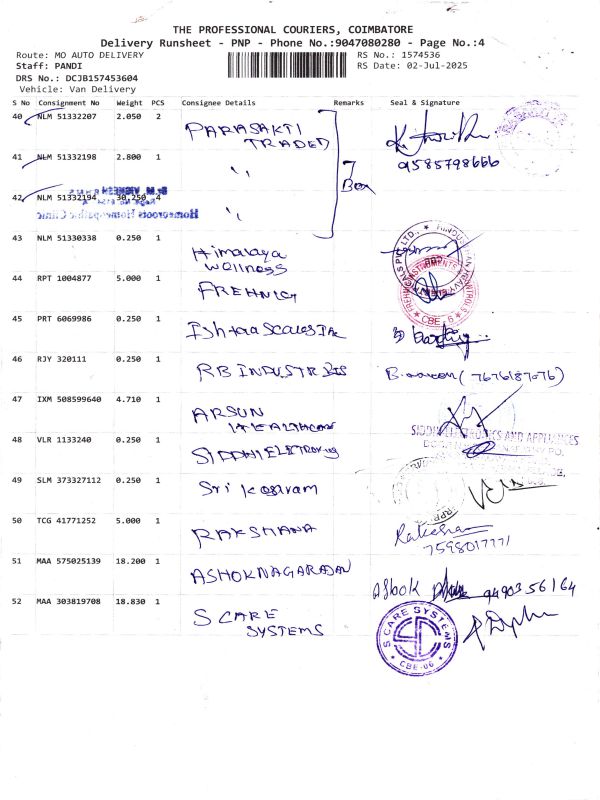 THE PROFESSIONAL COURIERS, COIMBATORE
Delivery Runsheet - PNP - Phone No.:9047080280 - Page No.:4
Route: MO AUTO DELIVERY
RS No.: 1574536
Staff: PANDI
RS Date: 02-Jul-2025
DRS No.: DCJB157453604
Vehicle: Van Delivery
S No Consignment No Weight PCS Consignee Details Remarks Seal & Signature
40 NLM 51332207 2.050 2 PARASAKTI TRADED
41 NLM 51332198 2.800 1 " 7 Box 9585798666
42 NLM 51332194 30.250 4 "
Homeoroots Homeopathic Clinic
43 NLM 51330338 0.250 1 Himalaya Wellness
44 RPT 1004877 5.000 1
CBE - 6
45 PRT 6069986 0.250 1 Ishtaa Scales Inc
46 RJY 320111 0.250 1 RB INDUSTRIES (7676187076)
47 IXM 508599640 4.710 1 ARSUN HEALTHCARE
48 VLR 1133240 0.250 1 SIDDHI ELETRONICS
SIDDHI ELECTRONICS AND APPLIANCES
49 SLM 373327112 0.250 1 Sri Kasiram
50 TCG 41771252 5.000 1 RAKSHANA Rakshan
7598017771
51 MAA 575025139 18.200 1 ASHOKNAGARAJAN Ashok 9490356164
52 MAA 303819708 18.830 1 S CARE SYSTEMS
S CARE SYSTEMS
CBE-06